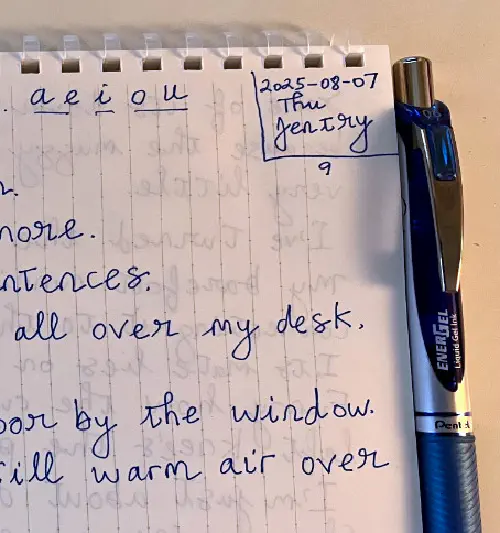 a e i o u
2025-08-07
Thu
Jentry
9
more.
all over my desk.
by the window.
warm air over
ENERGEL
Liquid Gel Ink
Pentel